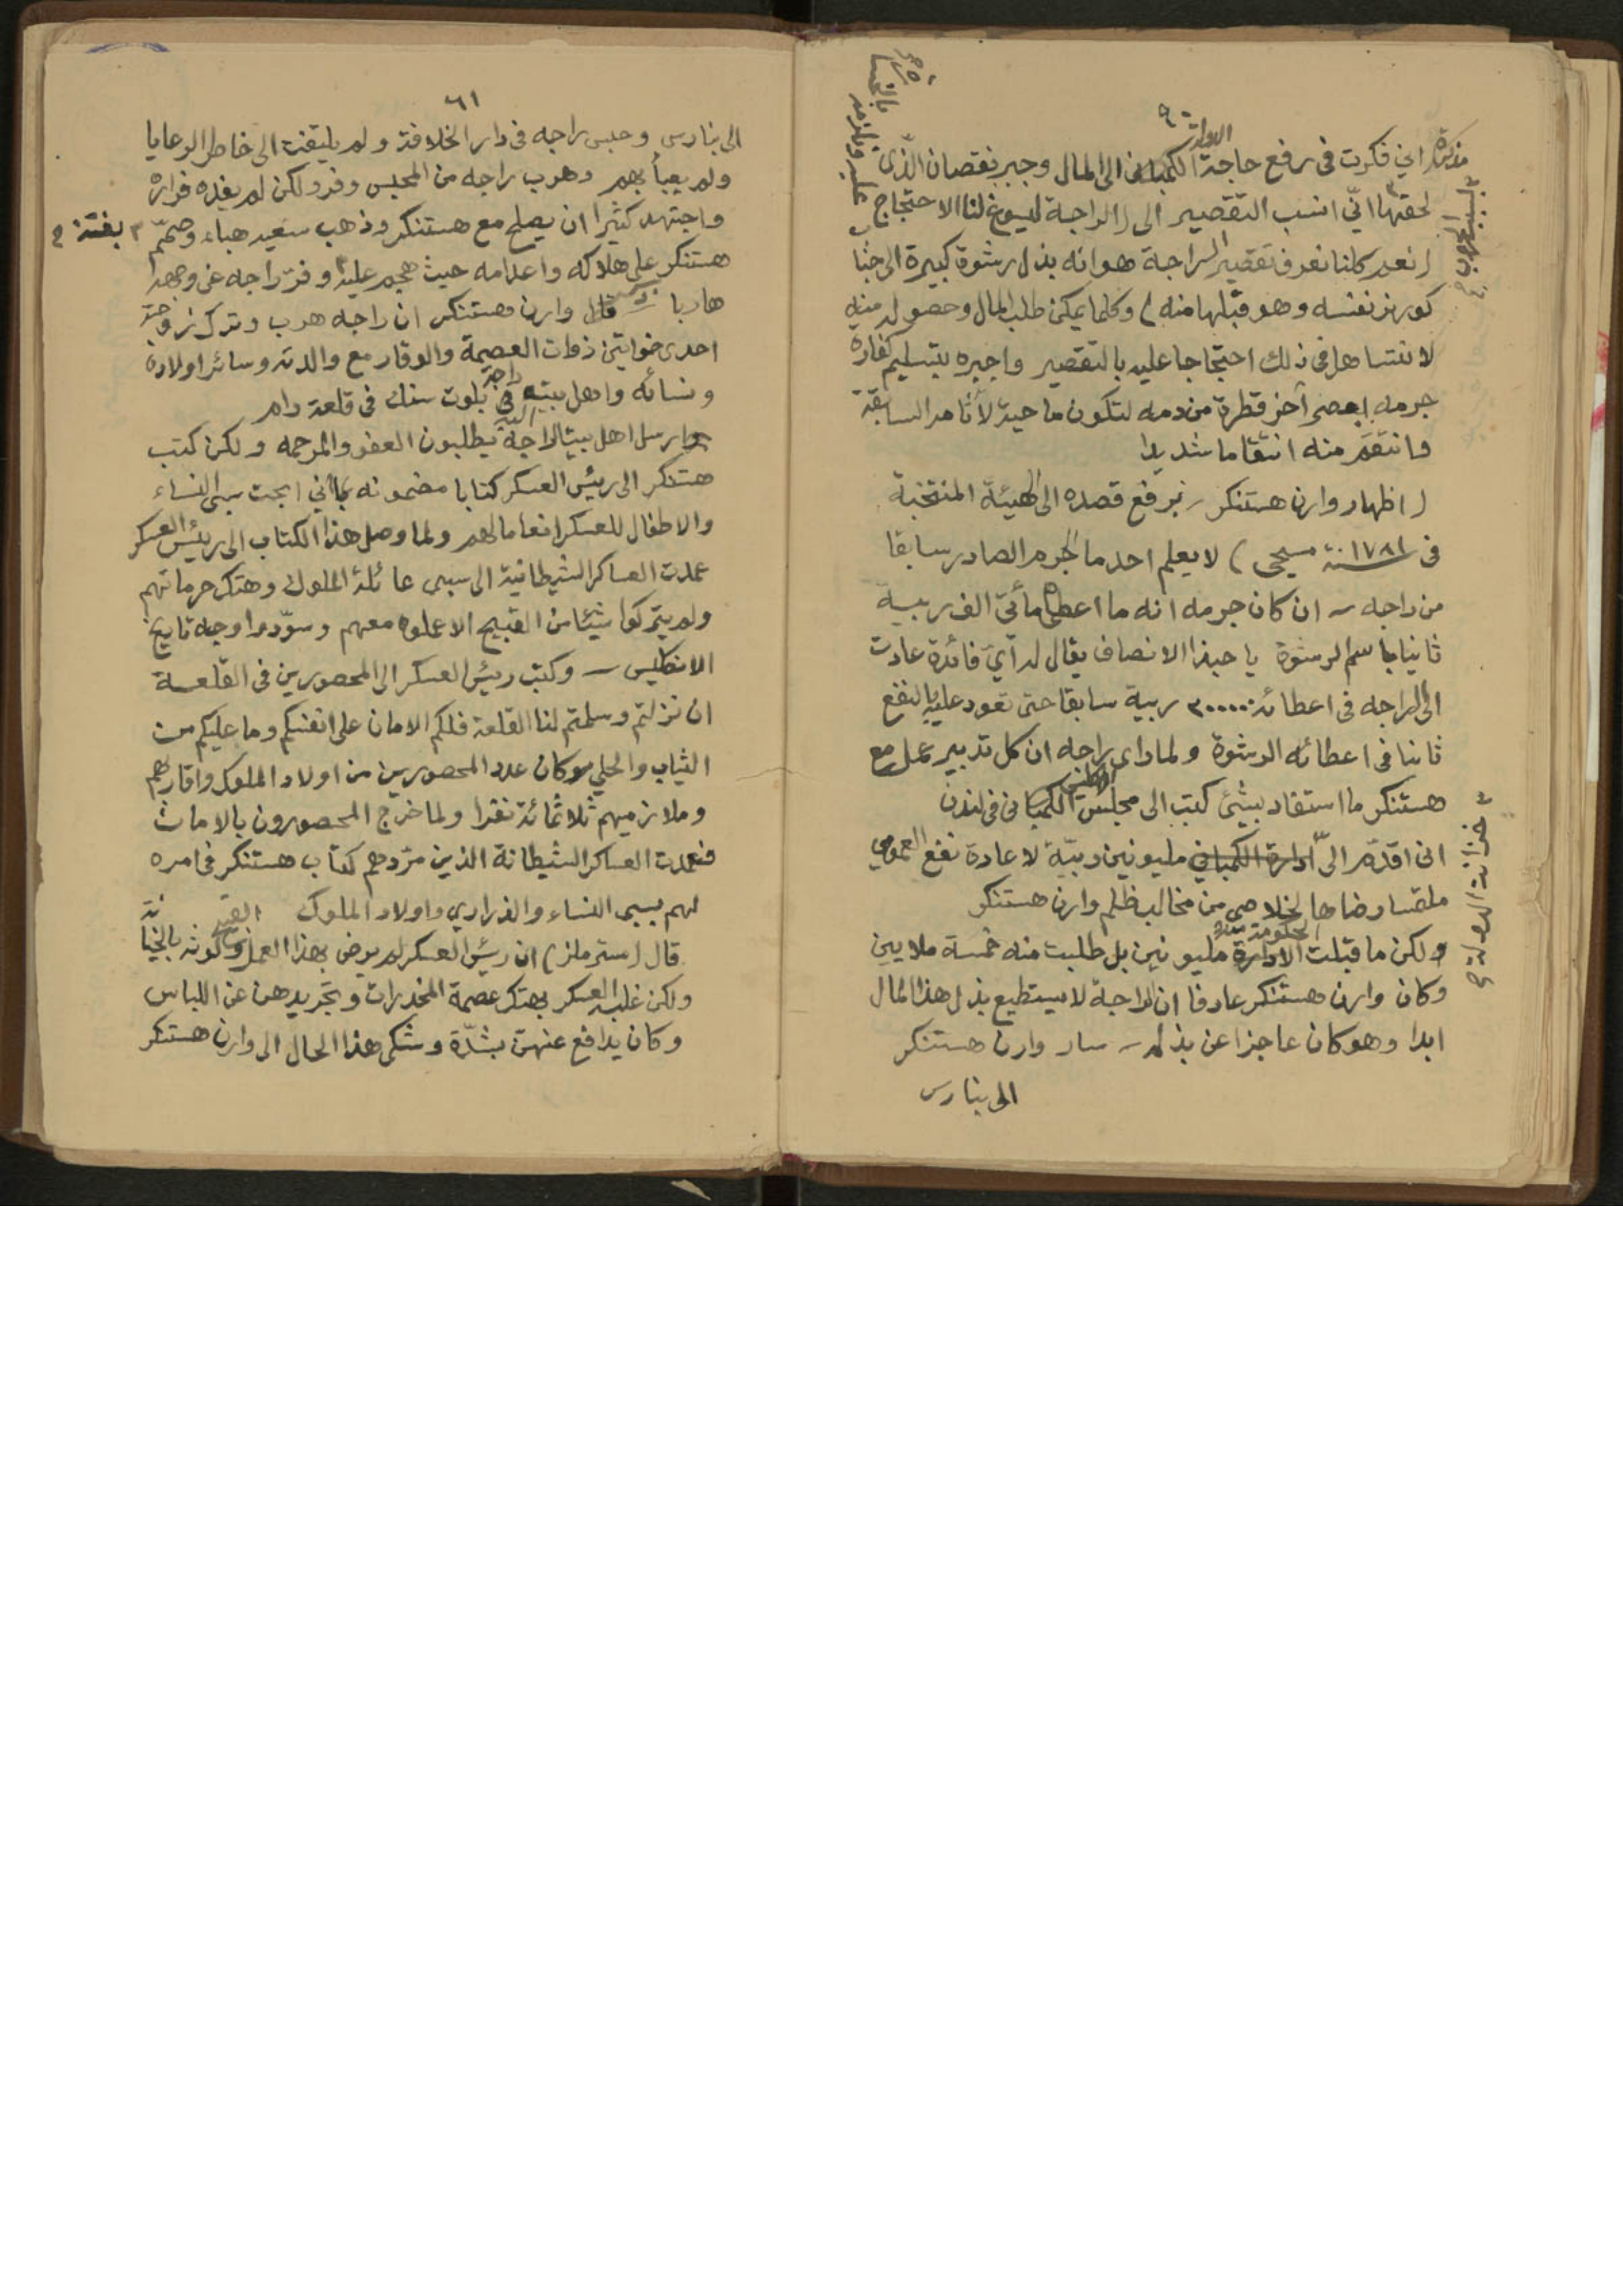 اني فكرت في رفع حاجة الكمباني الى المال وجبر نقصان الذي
لحقها اني انسب التقصير الى (الراجة ليسوغ لنا الاحتجاج
(نعم كلنا نعرف تقصير الراجة هو انه بذل رشوة كبيرة الى جناب
كورنر نفسه وهو قبلها منه) وكلما يمكن طلب المال وحصوله منه
لا نتساهل في ذلك احتجاجا عليه بالتقصير واجبره بتسليم كفارة
جرمه اعصر آخر قطرة من دمه لتكون ماحية لآثامه السابقة
وانتقم منه انتقاما شديدا
(اظهار وارن هستنكر برفع قصده الى الهيئة المنتخبة
في سنة ١٧٨١ مسيحي) لا يعلم احد ما الجرم الصادر سابقا
من راجه ـ ان كان جرمه انه ما اعطى مأتي الف ربية
ثانيا باسم الرشوة يا حبذا الانصاف يقال له أي فائدة عادت
الى الراجه في اعطائه ٢٠٠٠٠٠ ربية سابقا حتى تعود عليه بالنفع
ثانيا في اعطائه الرشوة ولما رأى راجه ان كل تدبير عمل مع
هستنكر ما استفاد بشئ كتب الى مجلس الكمباني في لندن
اني اقدم الى ادارة الكمباني مليونين ربية لاعادة نفع العمومي
ملتمسا رضاها لخلاصي من مخالب ظلم وارن هستنكر
ولكن ما قبلت الادارة مليونين بل طلبت منه خمسة ملايين
وكان وارن هستنكر عارفا ان الراجة لا يستطيع بذل هذا المال
ابدا وهو كان عاجزا عن بذله ـ سار وارن هستنكر
الى بنارس
خزانة الدولة
٦١
الى بنارس وحبس راجه في دار الخلافة ولم يلتفت الى خاطر الرعايا
ولم يعبأ بهم وهرب راجه من المحبس وفر ولكن لم يفده فراره
واجتهد كثيرا ان يصلح مع هستنكر وذهب سعيه هباء وصمم
بغتة
هستنكر على هلاكه واعدامه حيث هجم عليه وفر راجه
هاربا قال وارن هستنكر ان راجه هرب وترك زوجته
احدى خواتين ذوات العصمة والوقار مع والدته وسائر اولاده
ونسائه واهل بيته في قلعة رام
وارسل اهل بيت الراجة يطلبون العفو والمرحمه ولكن كتب
هستنكر الى رئيس العسكر كتابا مضمونه باني ابحت سبي النساء
والاطفال للعسكر انعاما لهم ولما وصل هذا الكتاب الى رئيس العسكر
عمدت العساكر الشيطانية الى سبي عائلة الملوك وهتك حرماتهم
ولم يتركوا شيئا من القبيح الا عملوه معهم وسودوا وجه تاريخ
الانكليس ـ وكتب رئيس العسكر الى المحصورين في القلعة
ان نزلتم وسلمتم لنا القلعة فلكم الامان على انفسكم وما عليكم من
الثياب والحلي وكان عدد المحصورين من اولاد الملوك واقاربهم
وملازميهم ثلاثمائة نفرا ولما خرج المحصورون بالامان
فعمدت العساكر الشيطانة الذين كتاب هستنكر في امره
لهم بسبي النساء والذراري واولاد الملوك
قال (مستر ملز) ان رئيس العسكر لم يرض بهذا العمل
ولكن غلبه العسكر بهتك عصمة المخدرات وتجريدهن عن اللباس
وكان يدافع عنهن بشدة وشكى هذا الحال الى وارن هستنكر